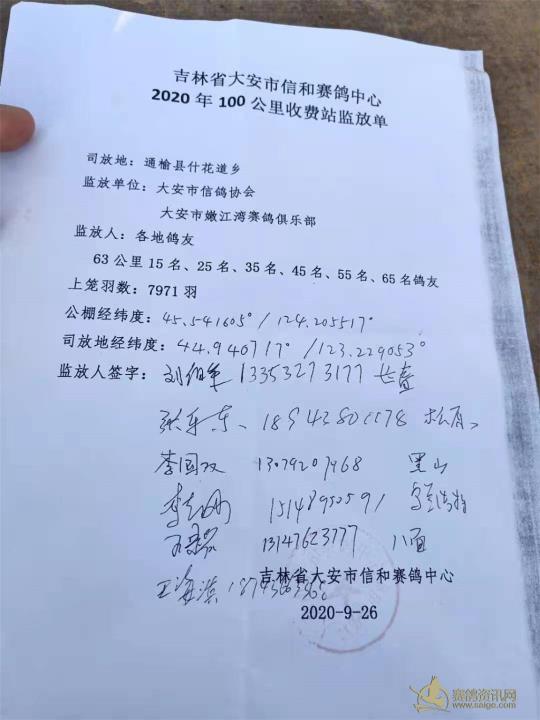 吉林省大安市信和赛鸽中心
2020年100公里收费站监放单
司放地：通榆县什花道乡
监放单位：大安市信鸽协会
大安市嫩江湾赛鸽俱乐部
监放人：各地鸽友
63公里15名、25名、35名、45名、55名、65名鸽友
上笼羽数：7971羽
公棚经纬度：45.541605°/124.205517°
司放地经纬度：44.940717°/123.229053°
监放人签字： 13353273177 长春
李国双 13079207968 黑山
15148950591
13147623777 八面
王海滨
吉林省大安市信和赛鸽中心
2020-9-26
赛鸽资讯网
www.saige.com